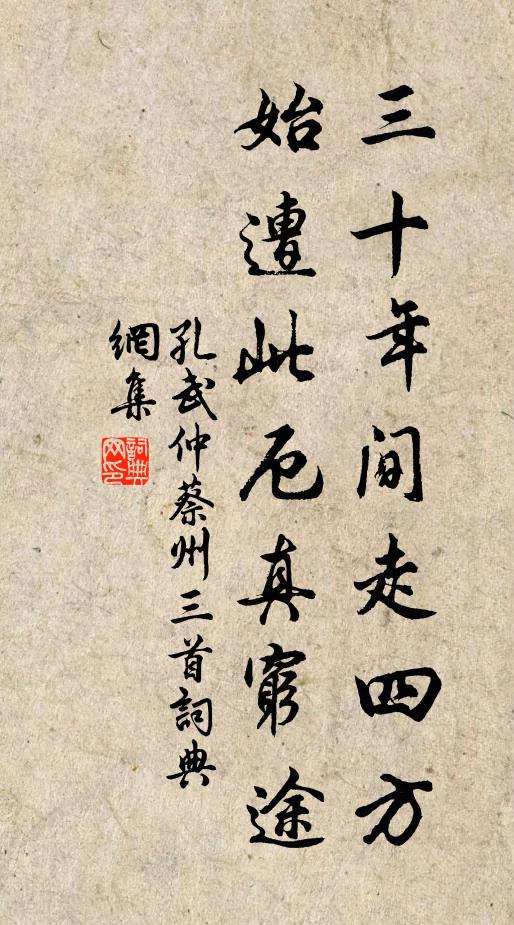 三十年間走四方
始遭此厄真窮途
孔武仲蔡州三首詞典
網集
詞典網印